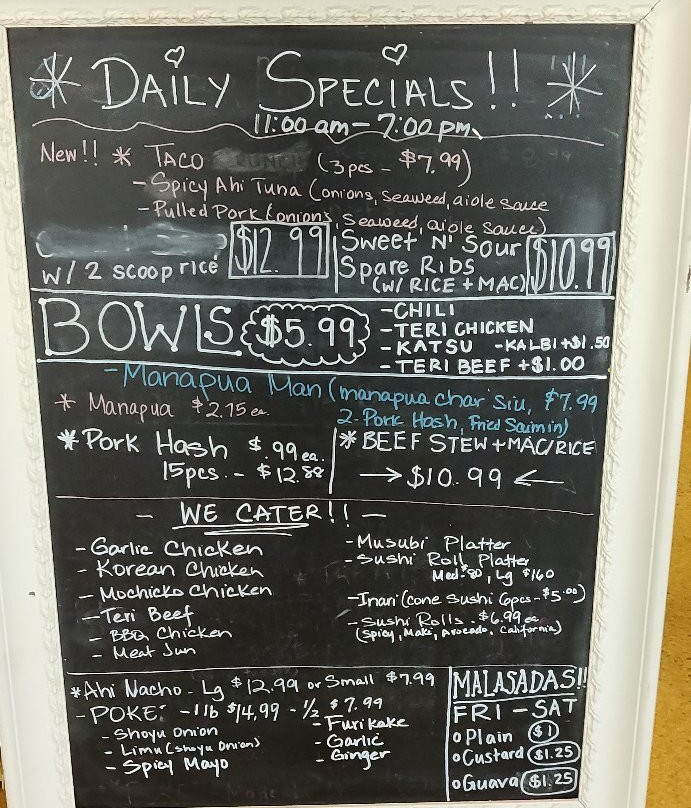 * DAILY SPECIALS!! *
11:00 am - 7:00 pm
New!! * TACO (3pcs - $7.99)
- Spicy Ahi Tuna (onions, seaweed, aiole sauce
- Pulled Pork (onions, seaweed, aiole sauce)
w/ 2 scoop rice $12.99
Sweet N' Sour
Spare Ribs
(w/ RICE + MAC) $10.99
BOWLS $5.99
- CHILI
- TERI CHICKEN
- KATSU - KALBI +$1.50
- TERI BEEF +$1.00
- Manapua Man (manapua char siu, $7.99
2 Pork Hash, Fried Saimin)
* Manapua $2.15 ea.
* Pork Hash $.99 ea.
15pcs. - $12.88
* BEEF STEW + MAC/RICE
→ $10.99 ←
- WE CATER!! -
- Garlic Chicken
- Korean Chicken
- Mochicko Chicken
- Teri Beef
- BBQ Chicken
- Meat Jun
- Musubi Platter
- Sushi Roll Platter
Med. $80, Lg $160
- Inari (cone sushi 6pcs - $5.00)
- Sushi Rolls - $6.99 ea
(Spicy, Maki, Avocado, California)
* Ahi Nacho - Lg $12.99 or Small $7.99
- POKE: - 1 lb $14.99 - 1/2 $7.99
- Shoyu Onion
- Limu (shoyu onion)
- Spicy Mayo
- Furikake
- Garlic
- Ginger
MALASADAS!!
FRI - SAT
o Plain $1
o Custard $1.25
o Guava $1.25